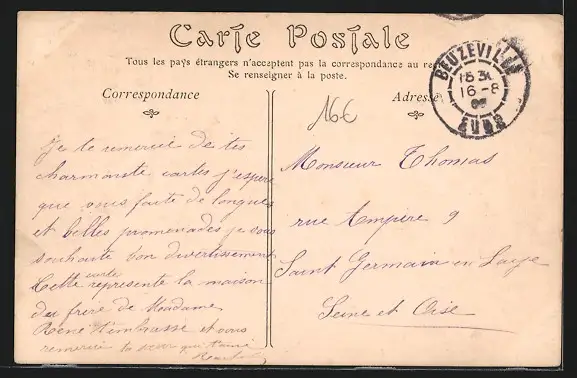 Carte Postale
Tous les pays étrangers n'acceptent pas la correspondance au
Se renseigner à la poste.
Correspondance
Adresse
16€
BEUZEVILLE
18 30
16 -8
EURE
Je te remercie de tes
charmante cartes j'espère
que vous faite de longues
et belles promenades je vous
souhaite bon divertissement
Cette carte represente la maison
du frère de Madame
René et vous
remercie ta sœur qui t'aime
Monsieur Thomas
rue Ampère 9
Saint Germain en Laye
Seine et Oise